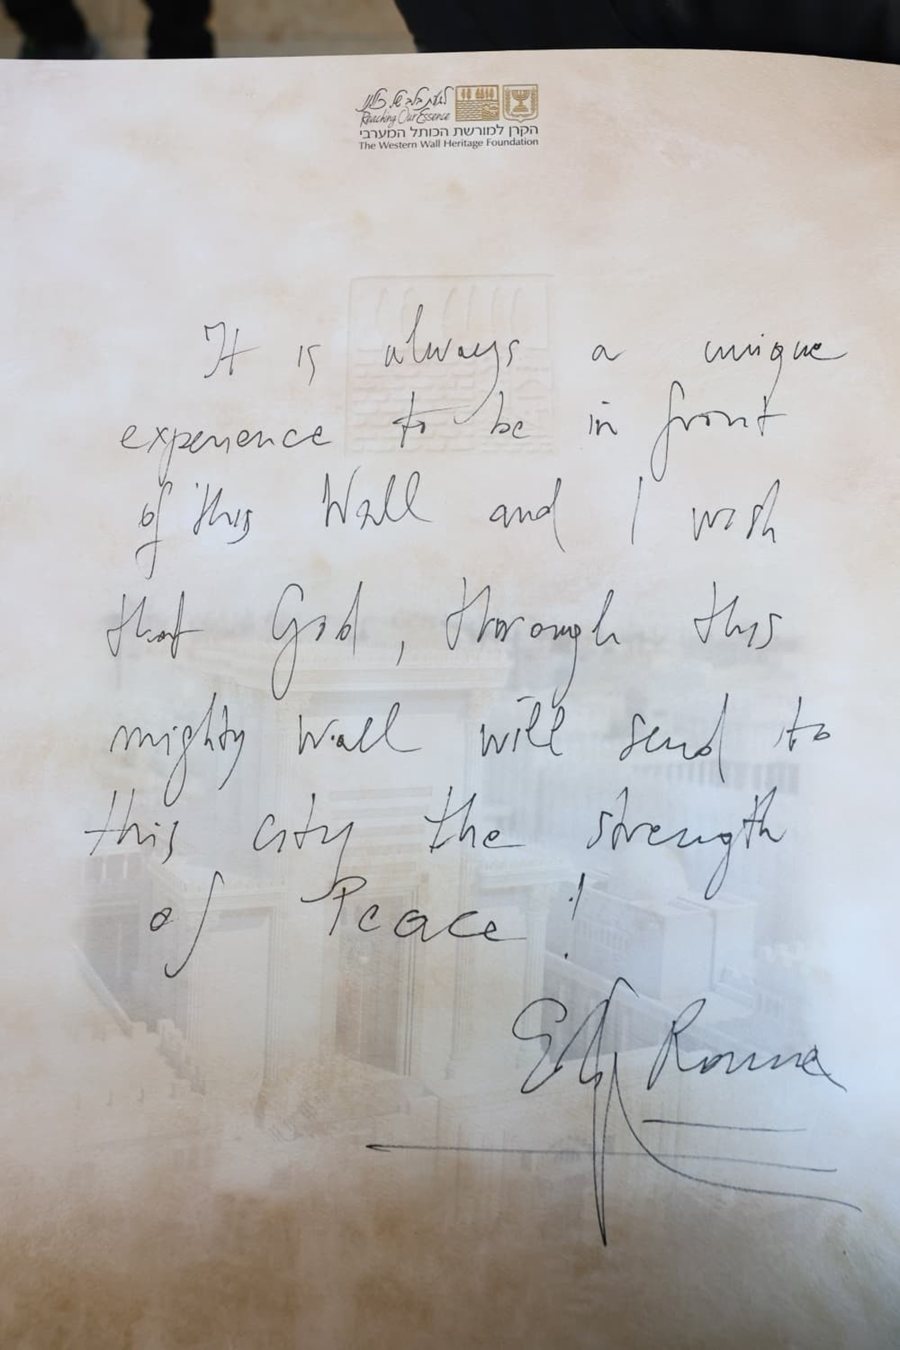 לגעת בלב של כולנו
Reaching Our Essence
הקרן למורשת הכותל המערבי
The Western Wall Heritage Foundation
It is always a unique
experience to be in front
of this Wall and I wish
that God, thorough this
mighty wall will send to
this city the strength
of Peace!